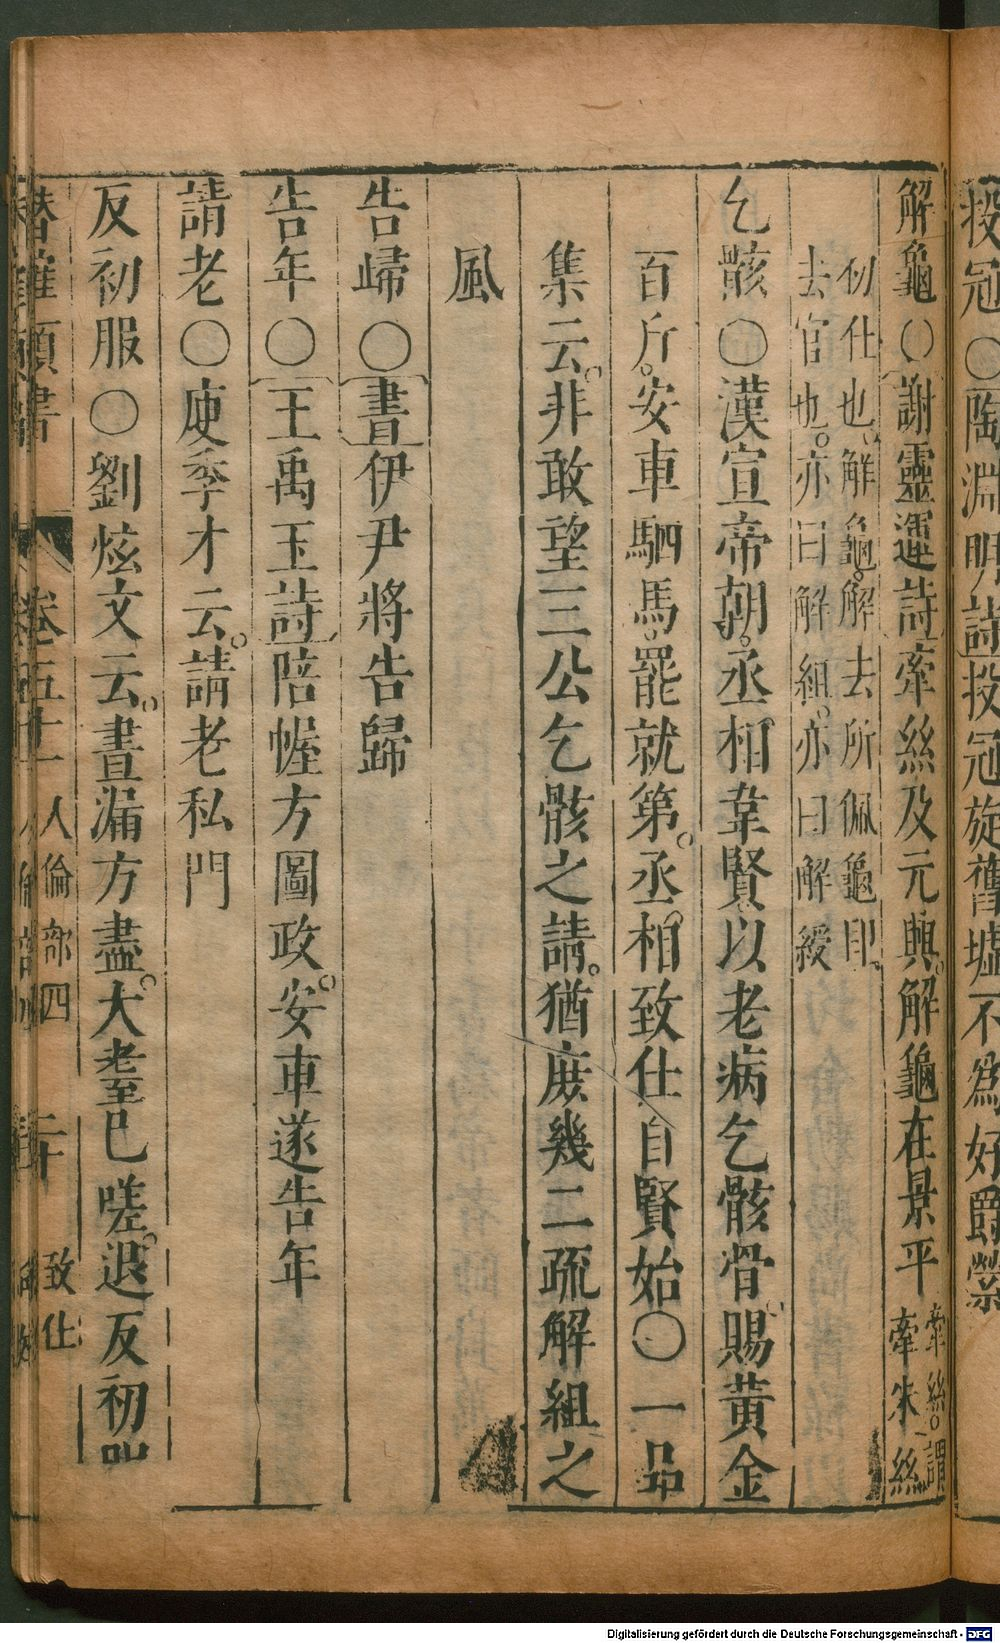 投冠〇陶淵明詩投冠旋舊墟不為好爵縈
解龜〇謝靈運詩牽絲及元興解龜在景平牽絲謂
牽朱絲
初仕也解龜解去所佩龜印
去官也亦曰解組亦曰解綬
乞骸〇漢宣帝朝丞相韋賢以老病乞骸骨賜黃金
百斤安車駟馬罷就第丞相致仕自賢始〇一品
集云非敢望三公乞骸之請猶庶幾二疏解組之
風
告歸〇書伊尹將告歸
告年〇王禹玉詩陪幄方圖政安車遂告年
請老〇庾季才云請老私門
反初服〇劉炫文云晝漏方盡大耋已嗟退反初
卷五十 人倫部四 二十 致仕
Digitalisierung gefördert durch die Deutsche Forschungsgemeinschaft - DFG